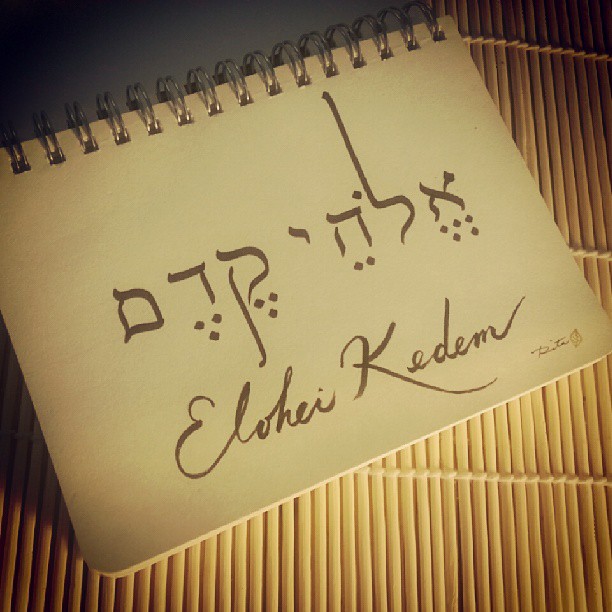 אֱלֹהֵי קֶדֶם
Elohei Kedem
Rita